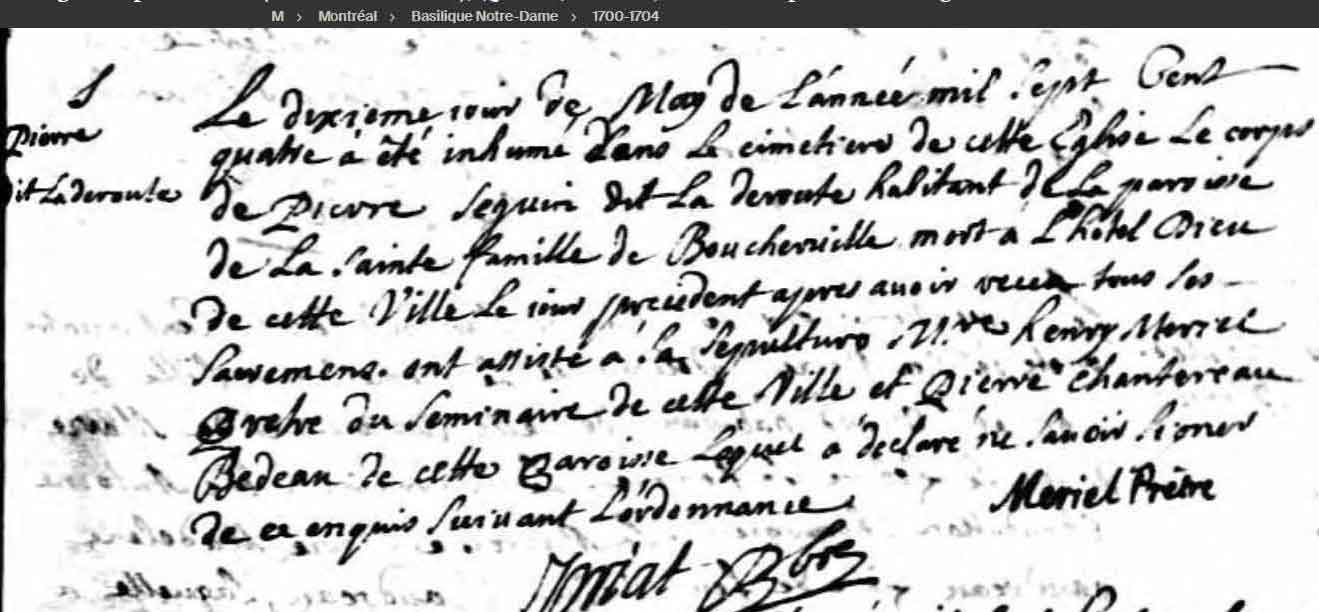 M › Montréal › Basilique Notre-Dame › 1700-1704
S
Pierre
dit Laderoute
Le dixieme iour de May de L'année mil sept Cent
quatre a été inhumé dans Le cimetiere de cette Eglise Le corps
de Pierre Seguin dit La deroute habitant de La paroisse
de La Sainte famille de Boucherville mort a L'hôtel Dieu
de cette Ville Le iour precedent apres auoir receu tous Ses
Sacremens. ont assisté a Sa Sepulture Mre henry Meriel
Pretre du Seminaire de cette Ville et Pierre Chantereau
Bedeau de cette Paroisse Lequel a declaré ne Sauoir Signer
de ce enquis Suiuant L'ordonnance
Meriel Prêtre
Priat Pbre